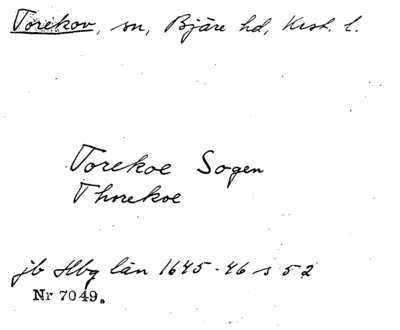 Torekov, sn, Bjäre hd, Krist. l.
Torekoe Sogen
Thorekoe
jb Hbg län 1645-46 s 52
Nr 7049.